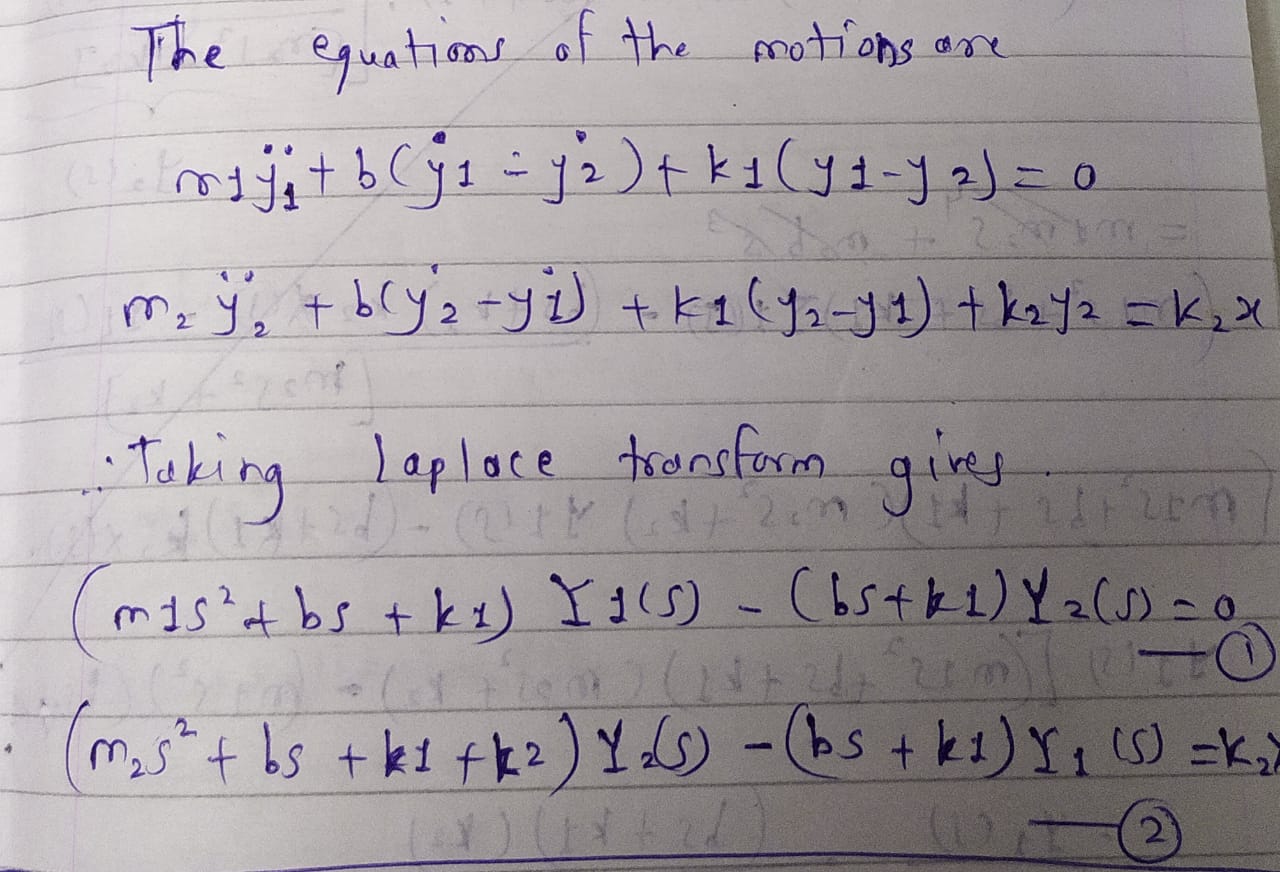 The equations of the motions are
m1ÿ1 + b(ẏ1 - ẏ2) + k1(y1-y2) = 0
m2 ÿ2 + b(ẏ2 - ẏ1) + k1(y2-y1) + k2y2 = k2x
∴ Taking laplace transform gives.
(m1s² + bs + k1) Y1(s) - (bs+k1) Y2(s) = 0
— ①
(m2s² + bs + k1 + k2) Y2(s) - (bs + k1) Y1(s) = k2
— ②